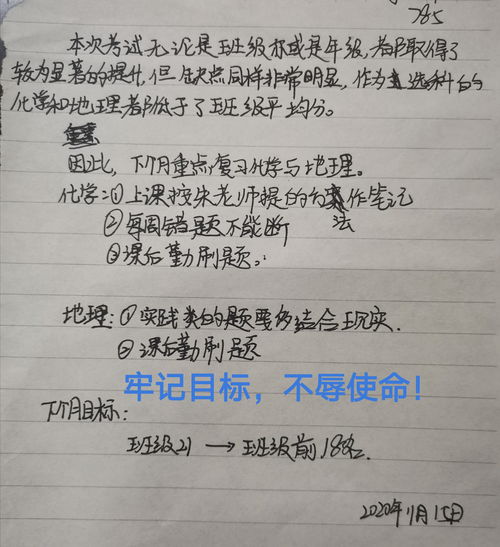 785
本次考试无论是班级抑或是年级，都取得了
较为显著的提升，但缺点同样非常明显，作为选科的
化学和地理都低于了班级平均分。
因此，下个月重点复习化学与地理。
化学：①上课按朱老师提的方法作笔记
②每周错题不能断
③课后勤刷题。
地理：①实践类的题要多结合现实.
②课后勤刷题
牢记目标，不辱使命！
下个月目标：
班级21 → 班级前18名.
2020年11月15日